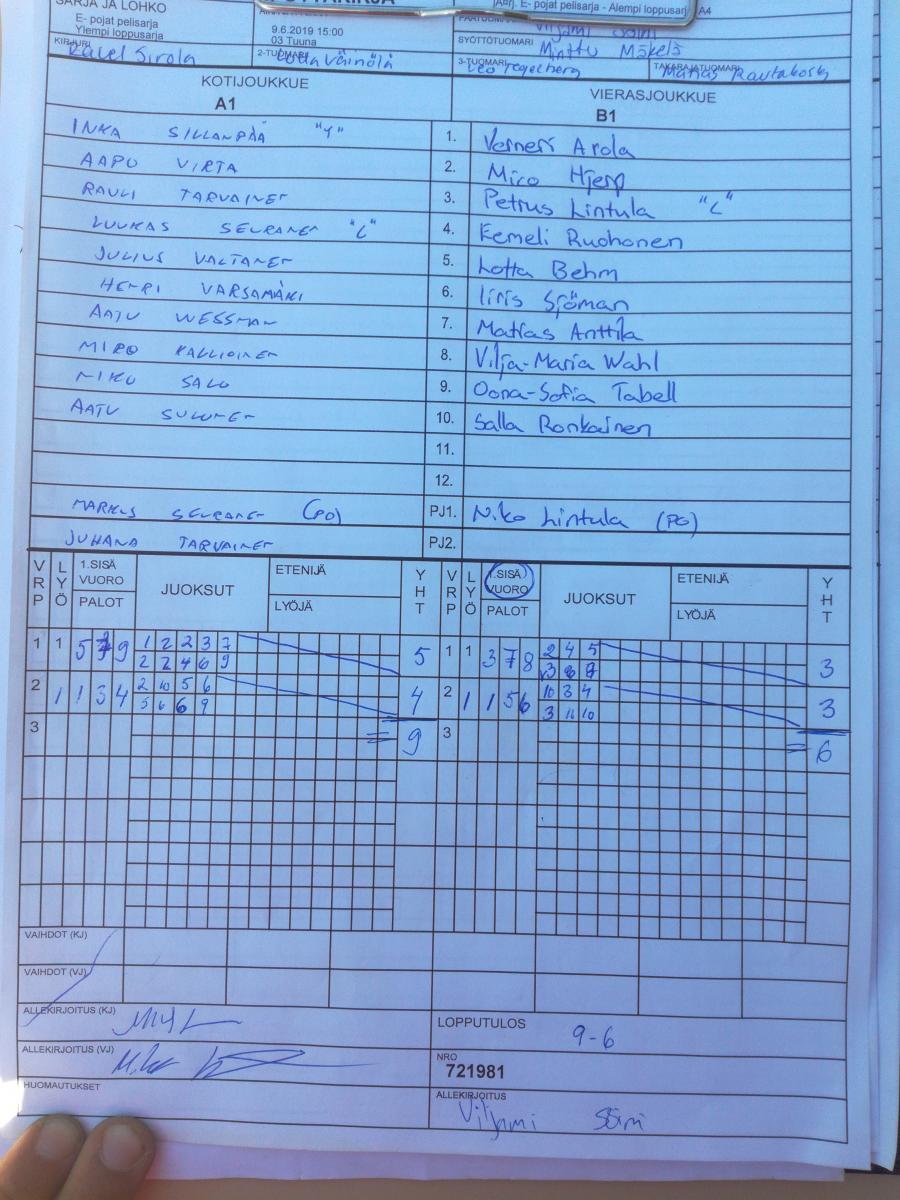 SARJA JA LOHKO
E- pojat pelisarja
Ylempi loppusarja
9.6.2019 15:00
03 Tuuna
E- pojat pelisarja - Alempi loppusarj
A4
KIRJURI
Sirola
2-TUOMARI
Lotta Väinölä
SYÖTTÖTUOMARI
Minttu Mäkelä
3-TUOMARI
Leo Tegelberg
TAKARAJATUOMARI
Matias Rautakoski
KOTIJOUKKUE
A1
VIERASJOUKKUE
B1
INKA SILLANPÄÄ "Y" 1. Verneri Arola
AAPO VIRTA 2. Miro Hjerp
RAULI TARVAINEN 3. Petrus Lintula "L"
LUUKAS SEURANEN "L" 4. Eemeli Ruohonen
JULIUS VALTANEN 5. Lotta Behm
HENRI VARSAMÄKI 6. Iiris Sjöman
AATU WESSMAN 7. Matias Anttila
MIRO KALLIOINEN 8. Vilja-Maria Wahl
NIKO SALO 9. Oona-Sofia Tabell
AATU SULONEN 10. Salla Ronkainen
11.
12.
MARKUS SEURANEN (PO) PJ1. Niko Lintula (PG)
JUHANA TARVAINEN PJ2.
VRP LYÖ 1.SISÄ VUORO PALOT JUOKSUT ETENIJÄ LYÖJÄ YHT VRP LYÖ 1.SISÄ VUORO PALOT JUOKSUT ETENIJÄ LYÖJÄ YHT
1 1 5 9 1 2 2 3 7 5 1 1 3 7 8 2 4 5 3
2 2 4 6 9 3 8
2 1 1 3 4 2 10 5 6 4 2 1 1 5 6 10 3 4 3
5 6 6 9 3 10
3 = 9 3 = 6
VAIHDOT (KJ)
VAIHDOT (VJ)
ALLEKIRJOITUS (KJ)
LOPPUTULOS
9-6
ALLEKIRJOITUS (VJ)
NRO
721981
HUOMAUTUKSET
ALLEKIRJOITUS
Viljami Soini